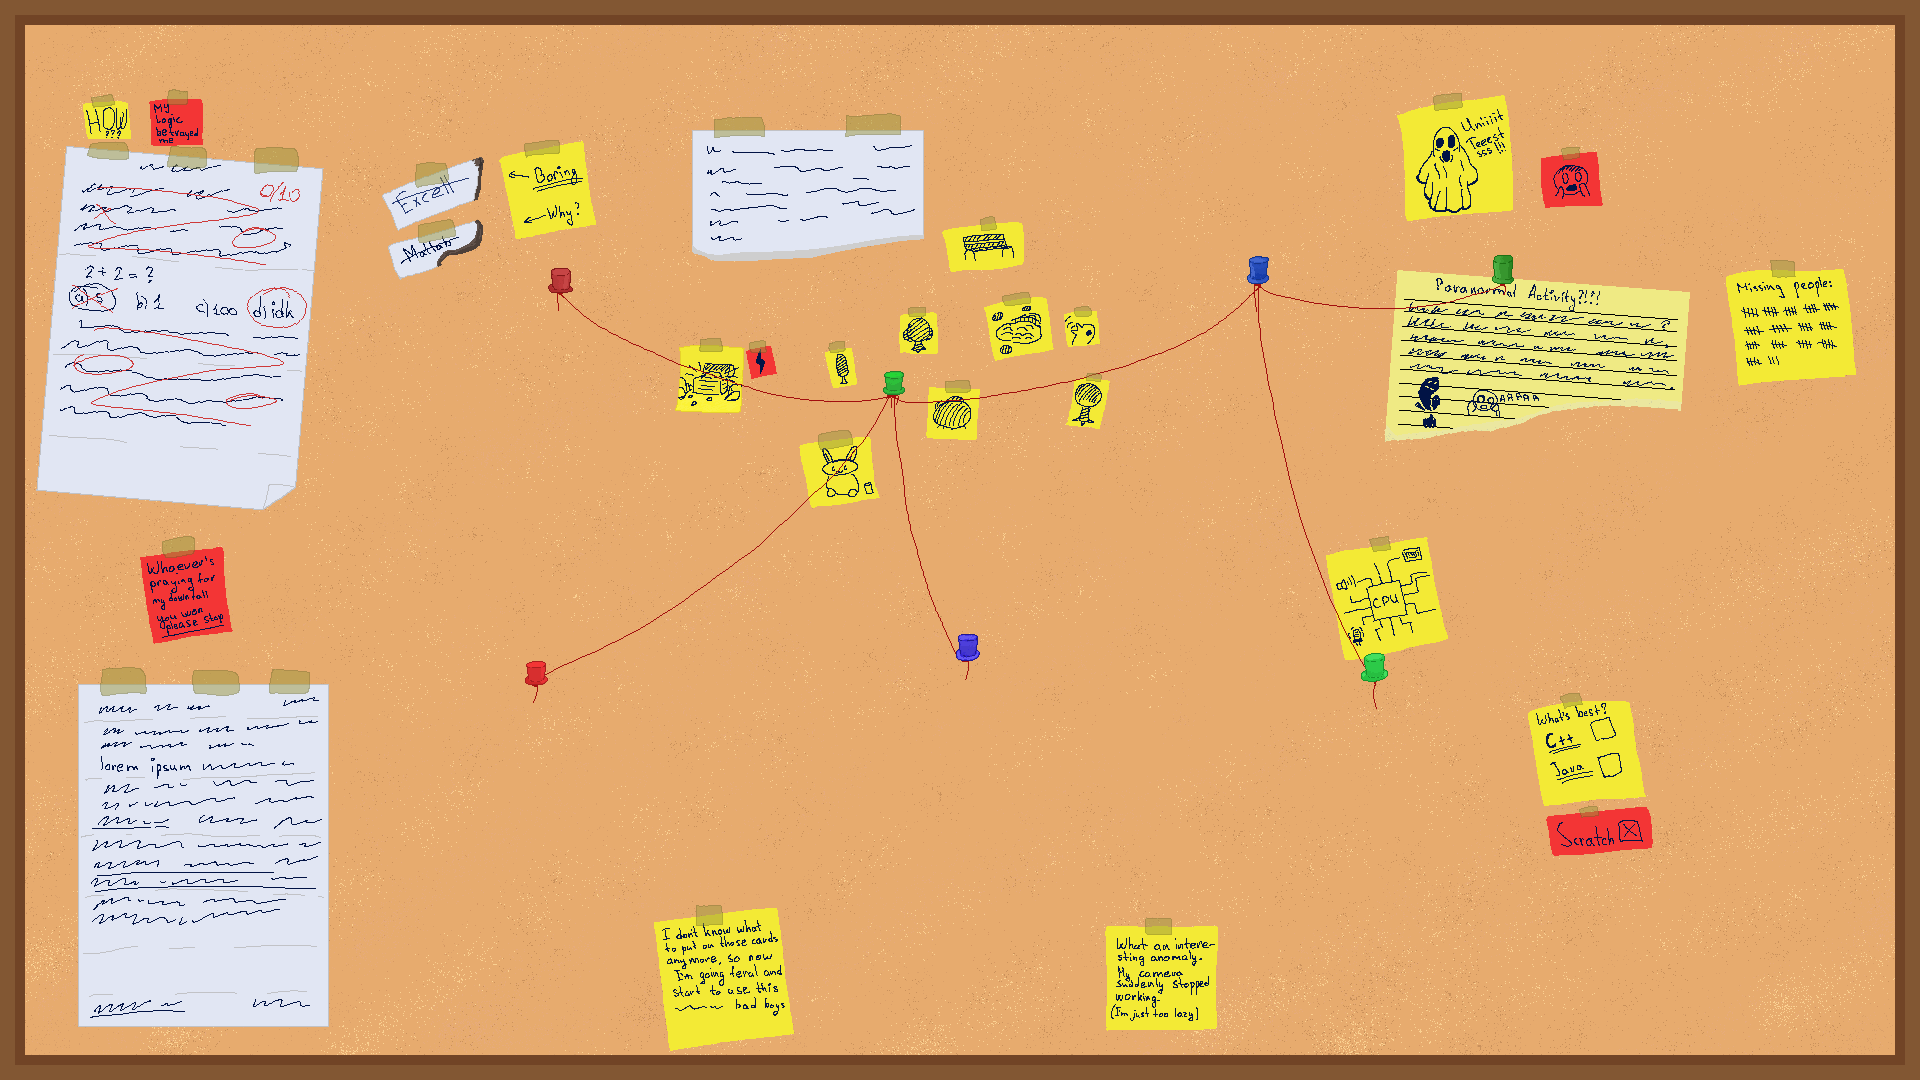 HOW
???
My
Logic
betrayed
me
0/10
2 + 2 = ?
a) 5 b) 1 c) 100 d) idk
Excell
Matlab
← Boring
← Why?
Uniiiit
Teeest
sss!!!
Paranormal Activity?!!!
AAAAA
Missing people:
Whoever's
praying for
my downfall
you won
please stop
CPU
lorem ipsum
What's best?
C++
Java
Scratch
I don't know what
to put on those cards
anymore, so now
I'm going feral and
start to use this
bad boys
What an intere-
sting anomaly.
My camera
suddenly stopped
working.
(I'm just too lazy)